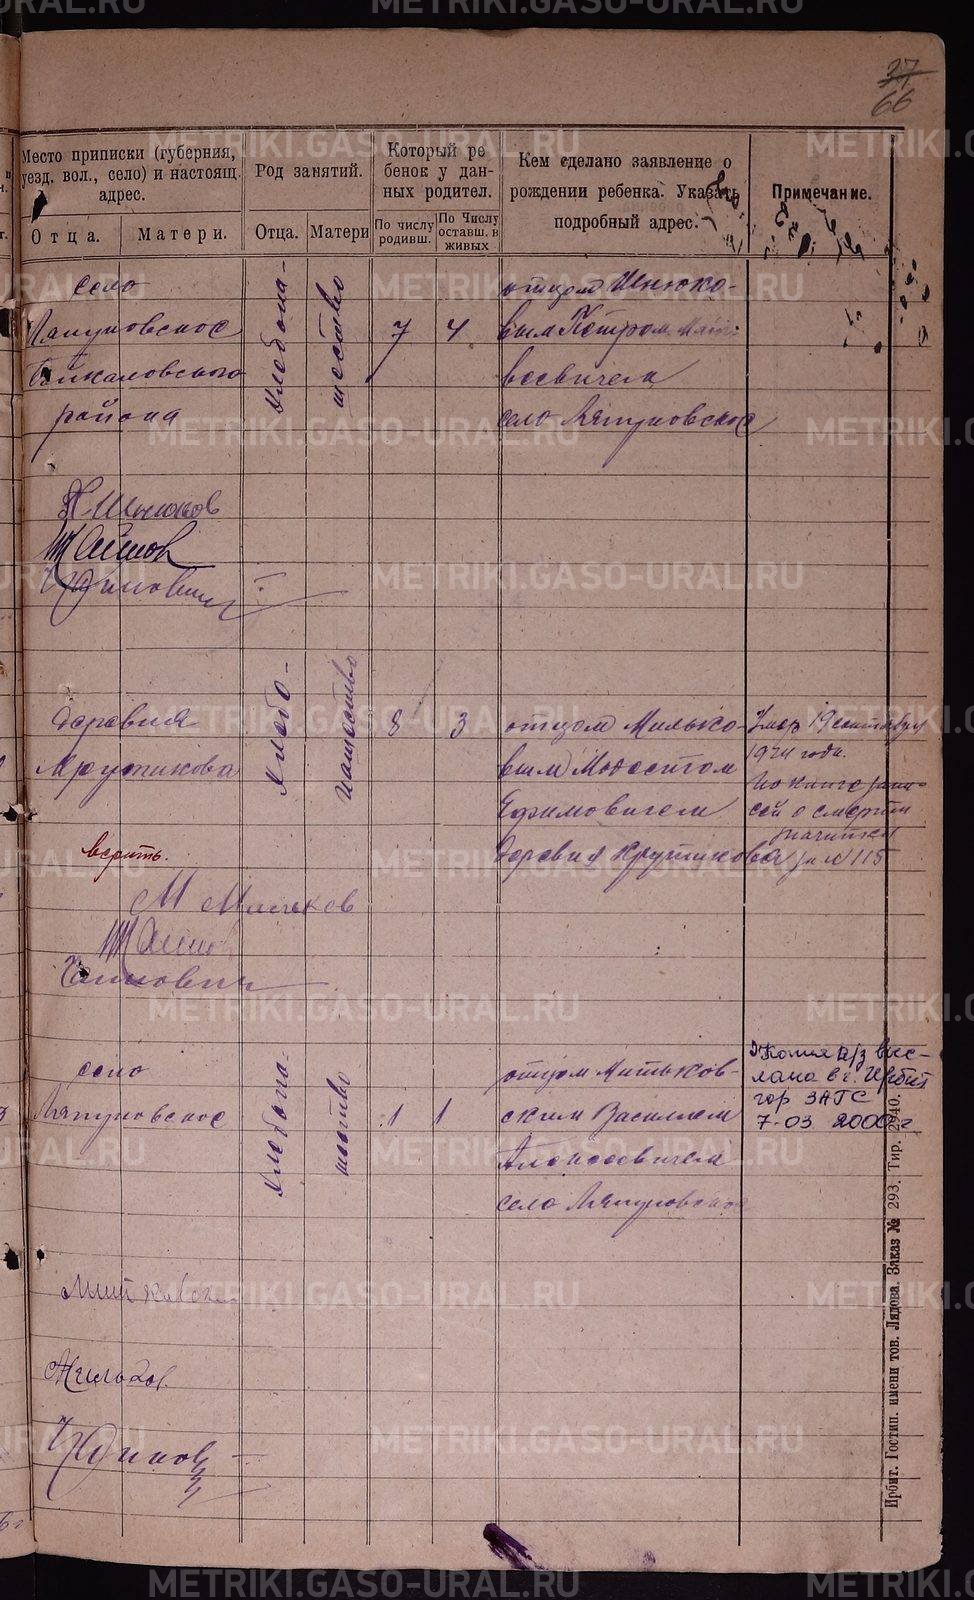 37
66
Место приписки (губерния,
уезд. вол., село) и настоящ.
адрес.
Род занятий.
Который ре
бенок у дан-
ных родител.
Кем сделано заявление о
рождении ребенка. Указать
подробный адрес.
Примечание.
Отца.
Матери.
Отца.
Матери
По числу
родивш.
По Числу
оставш. в
живых
село
Ляпуновское
Байкаловского
района
хлебопа-
шество
7
4
отцом Шнюко-
вым Петром Мат-
воевичем
село Ляпуновское
П Шнюков
деревня
Крутикова
верить.
хлебо-
пашество
8
3
отцом Милько-
вым Модестом
Ефимовичем
деревня Крутикова
Умер 19 сентября
1924 года.
По книге запи-
сей о смерти
значится
за № 115
М Мильков
село
Ляпуновское
хлебопа-
шество
1
1
отцом Митьков-
ским Василием
Алексеевичем
село Ляпуновское
Копия а/з выс-
лана в г. Ирбит
гор ЗАГС
7-03 2000 г
Ирбит. Гостип. имени тов. Лядова. Заказ № 293. Тир. 2940.
METRIKI.GASO-URAL.RU